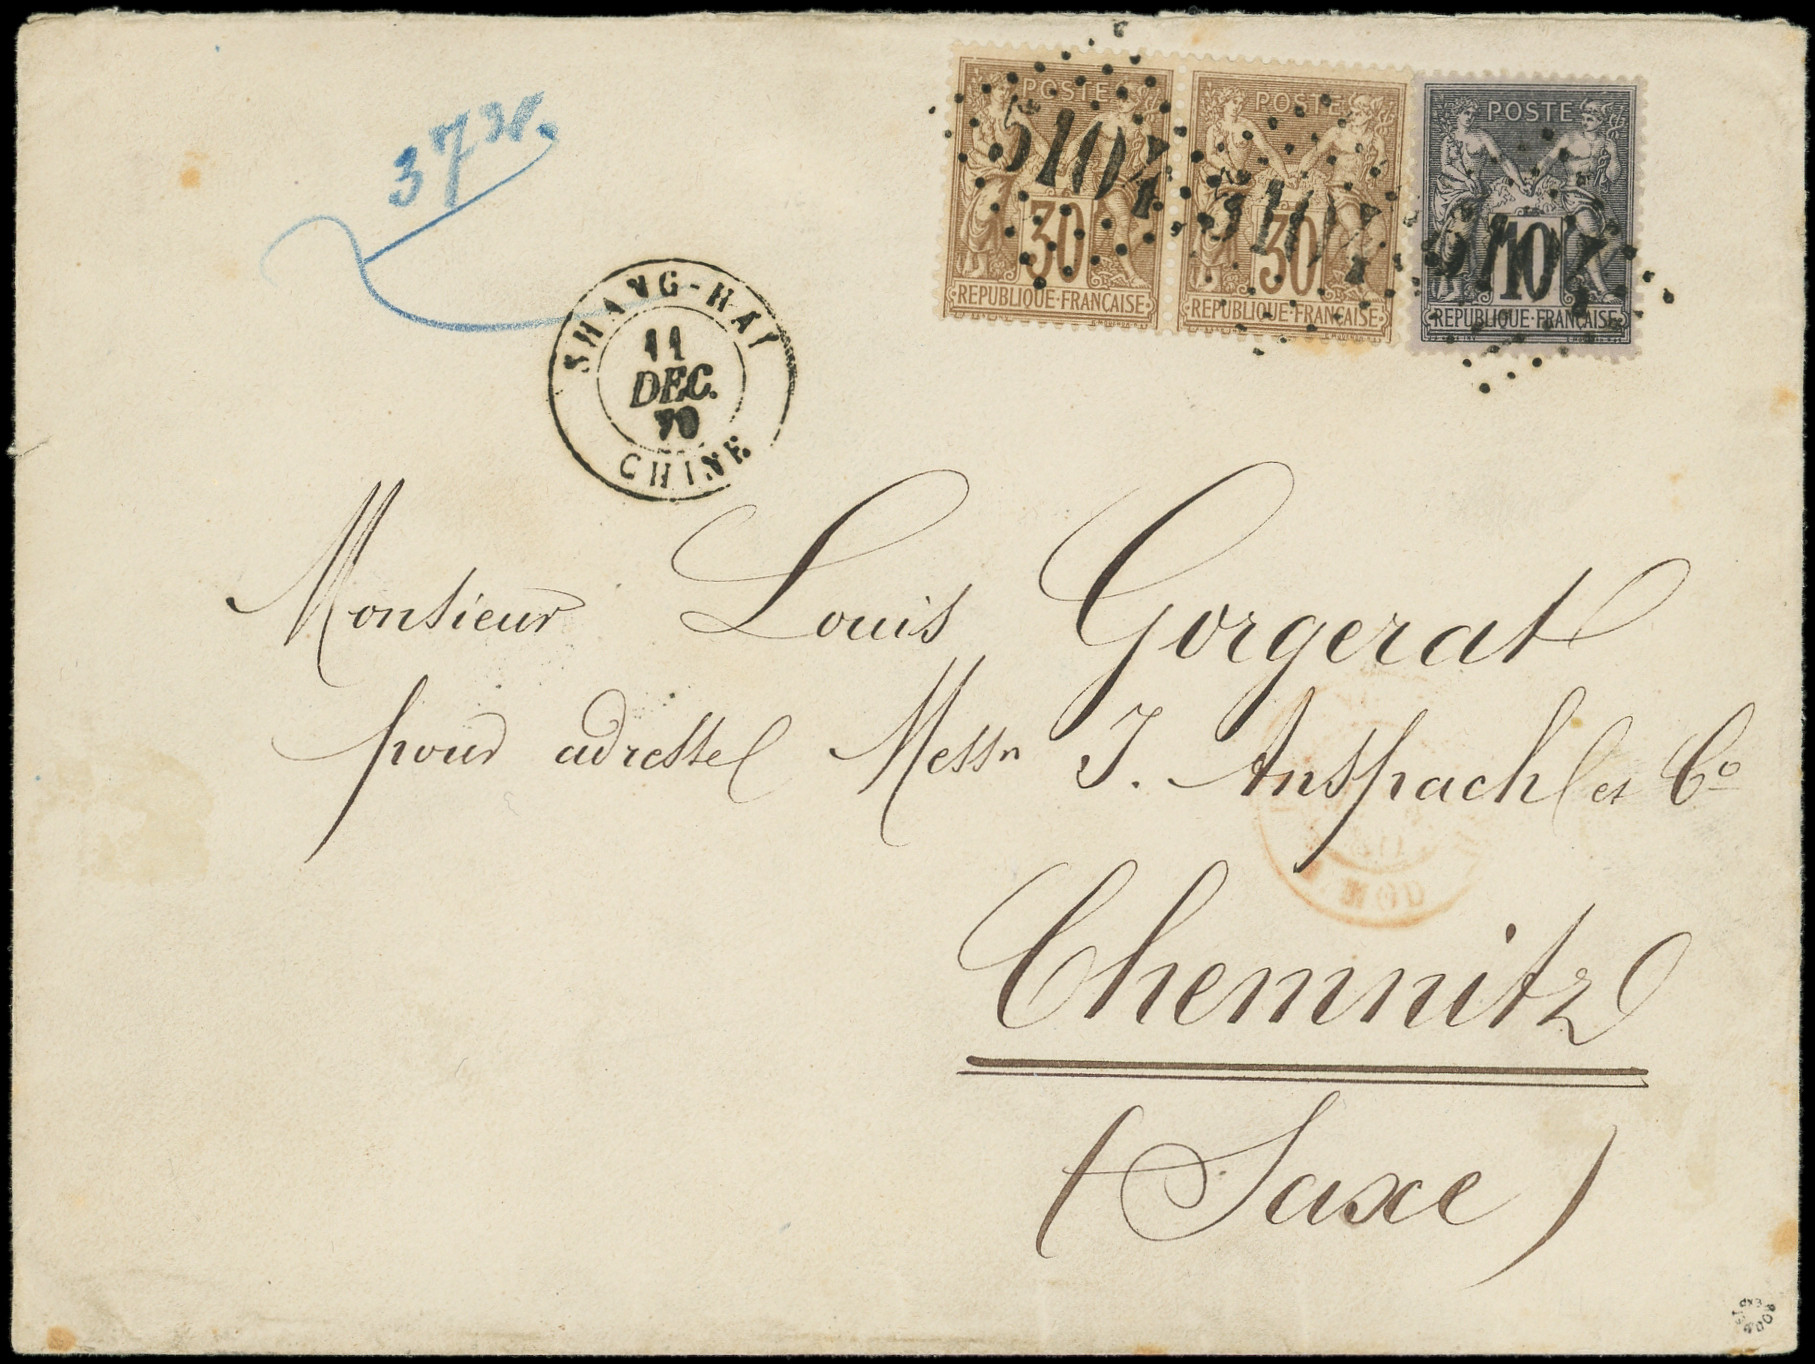 37
POSTE
30
REPUBLIQUE·FRANÇAISE
5104
POSTE
30
REPUBLIQUE·FRANÇAISE
5104
POSTE
10
REPUBLIQUE·FRANÇAISE
5104
SHANG-HAI
11
DEC.
70
CHINE
Monsieur Louis Gorgerat
pour adresse Messrs J. Anspach et Co
Chemnitz
(Saxe)